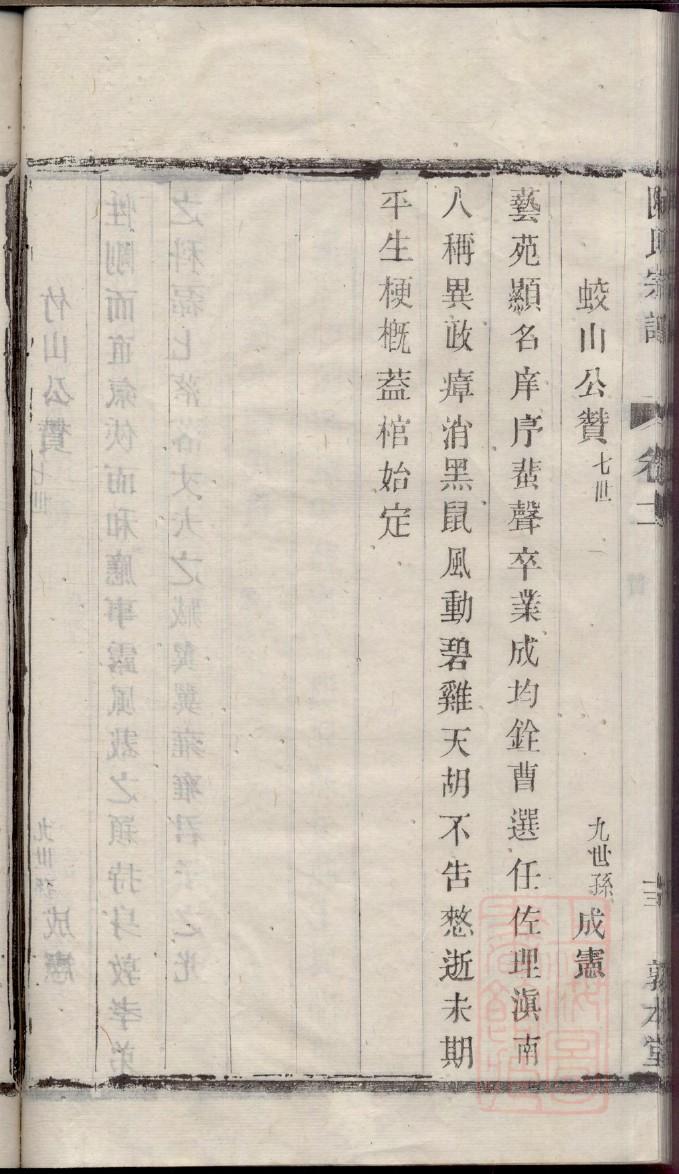 氏宗譜 卷二 敦本堂
蛟山公贊 七世 九世孫 成憲
藝苑顯名庠序蜚聲卒業成均銓曹選任佐理滇南
人稱異政瘴消黑鼠風動碧雞天胡不吿憖逝未期
平生梗概葢棺始定